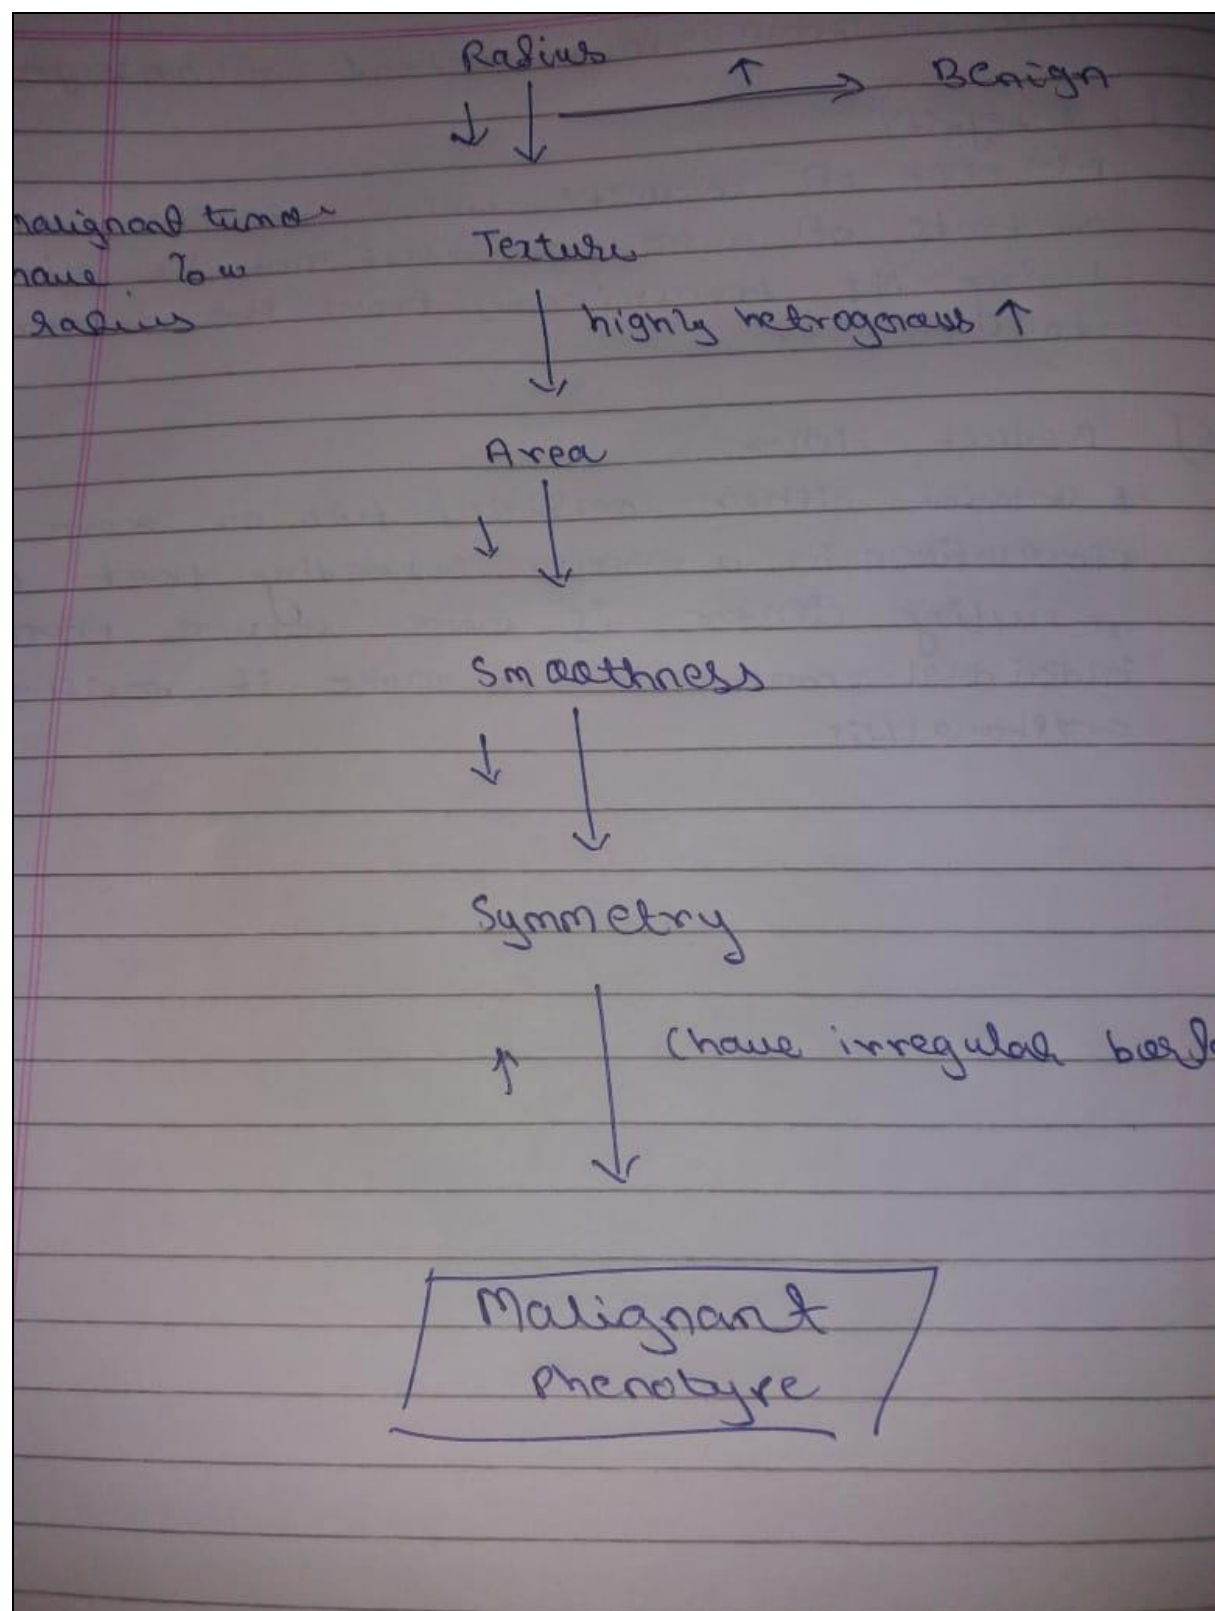 Radius
↑ Benign
↓
malignant tumor
have low
radius
Texture
highly hetrogenous ↑
Area
↓
Smoothness
↓
Symmetry
↑ (have irregular
Malignant
Phenotype